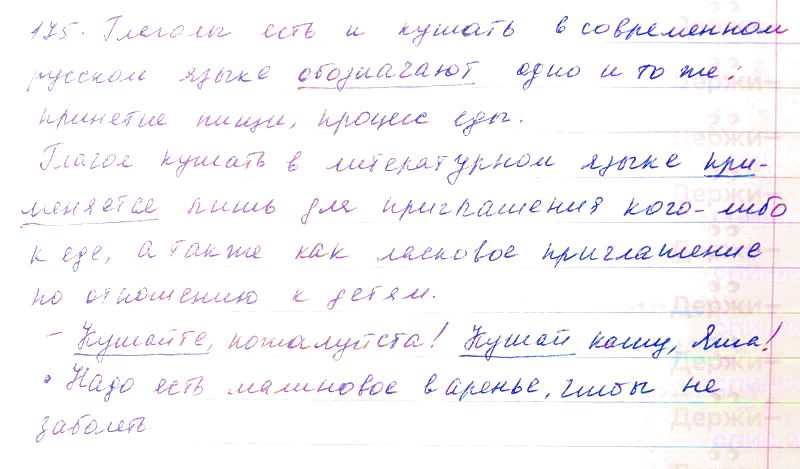 175. Глаголы есть и кушать в современном
русском языке обозначают одно и то же:
принятие пищи, процесс еды.
Глагол кушать в литературном языке при-
меняется лишь для приглашения кого-либо
к еде, а также как ласковое приглашение
по отношению к детям.
- Кушайте, пожалуйста! Кушай кашу, Яша!
• Надо есть малиновое варенье, чтобы не
заболеть